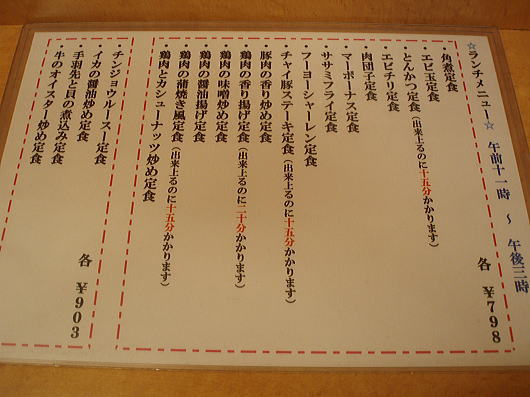 ☆ランチメニュー☆ 午前十一時 ～ 午後三時
・角煮定食
・エビ玉定食
・とんかつ定食(出来上るのに十五分かかります)
・エビチリ定食
・肉団子定食
・マーボーナス定食
・ササミフライ定食
・フーヨーシャーレン定食
・チャイ豚ステーキ定食(出来上るのに十五分かかります)
・豚肉の香り炒め定食
・鶏肉の香り揚げ定食(出来上るのに二十分かかります)
・鶏肉の味噌炒め定食
・鶏肉の醤油揚げ定食
・鶏肉の蒲焼き風定食(出来上るのに十五分かかります)
・鶏肉とカシューナッツ炒め定食
各 ￥798
・チンジョウルースー定食
・イカの醤油炒め定食
・手羽先と貝の煮込み定食
・牛のオイスター炒め定食
各 ￥903